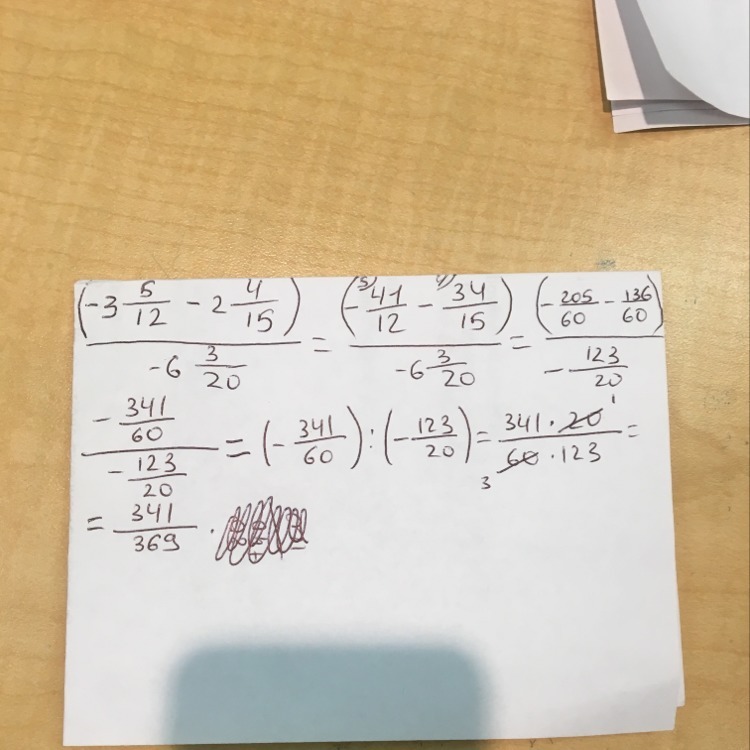 (-3 5/12 - 2 4/15) / -6 3/20 = (- 5) 41/12 - 4) 34/15) / -6 3/20 = (- 205/60 - 136/60) / - 123/20
- 341/60 / - 123/20 = (- 341/60) : (- 123/20) = 341 · 20 1 / 3 60 · 123 =
= 341/369 ·